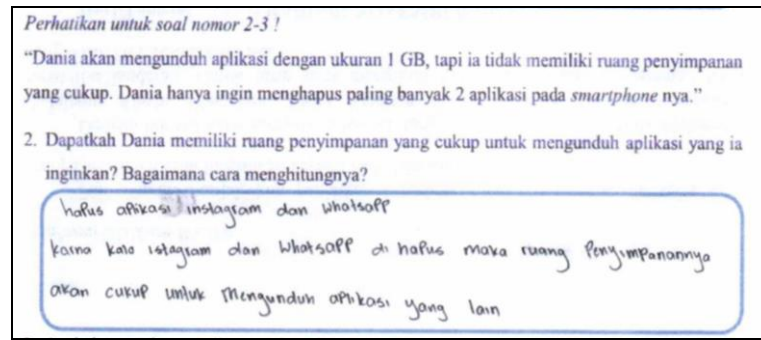 Perhatikan untuk soal nomor 2-3 !
“Dania akan mengunduh aplikasi dengan ukuran 1 GB, tapi ia tidak memiliki ruang penyimpanan
yang cukup. Dania hanya ingin menghapus paling banyak 2 aplikasi pada smartphone nya.”
2. Dapatkah Dania memiliki ruang penyimpanan yang cukup untuk mengunduh aplikasi yang ia
inginkan? Bagaimana cara menghitungnya?
hapus aplikasi instagram dan whatsapp
karna kalo istagram dan whatsapp di hapus maka ruang penyimpanannya
akan cukup untuk mengunduh aplikasi yang lain